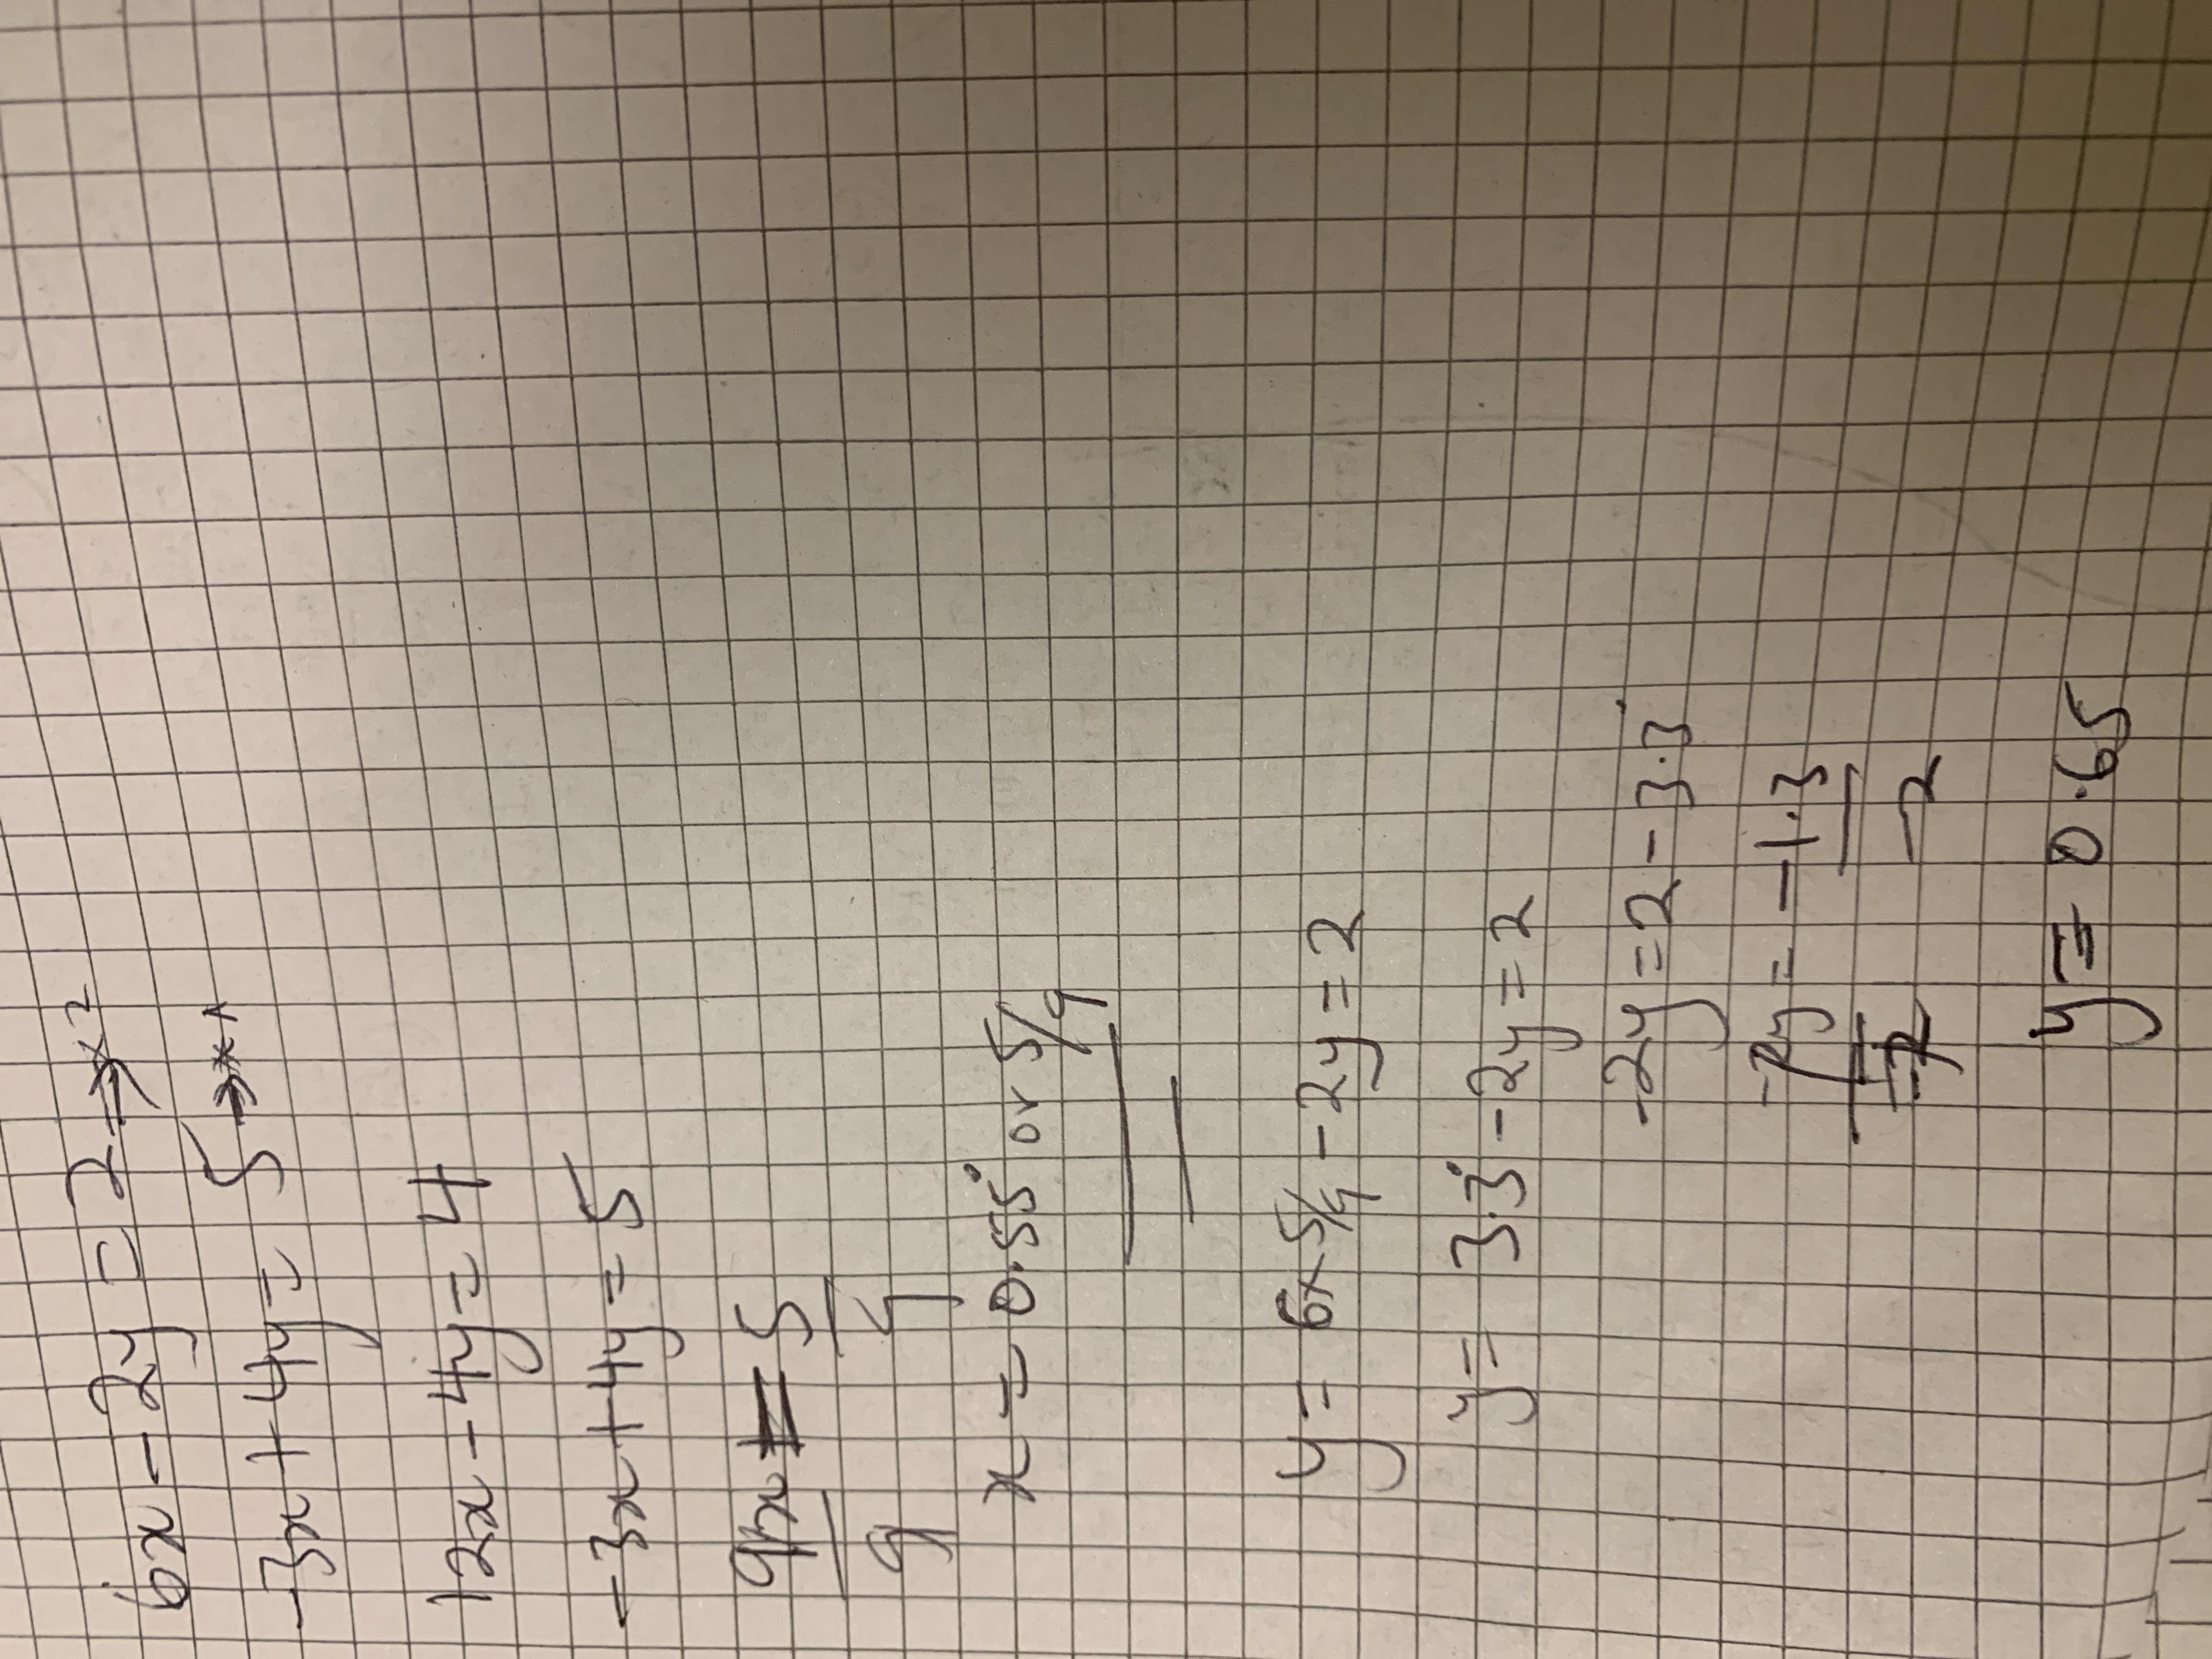 6x - 2y = 2 → x2
-3x + 4y = 5 → x1
12x - 4y = 4
-3x + 4y = 5
9x = 5
9 9
x = 0.55̇ or 5/9
y = 6x5/9 - 2y = 2
y = 3.3̇ - 2y = 2
-2y = 2 - 3.3̇
-2y = -1.3
-2 -2
y = 0.65